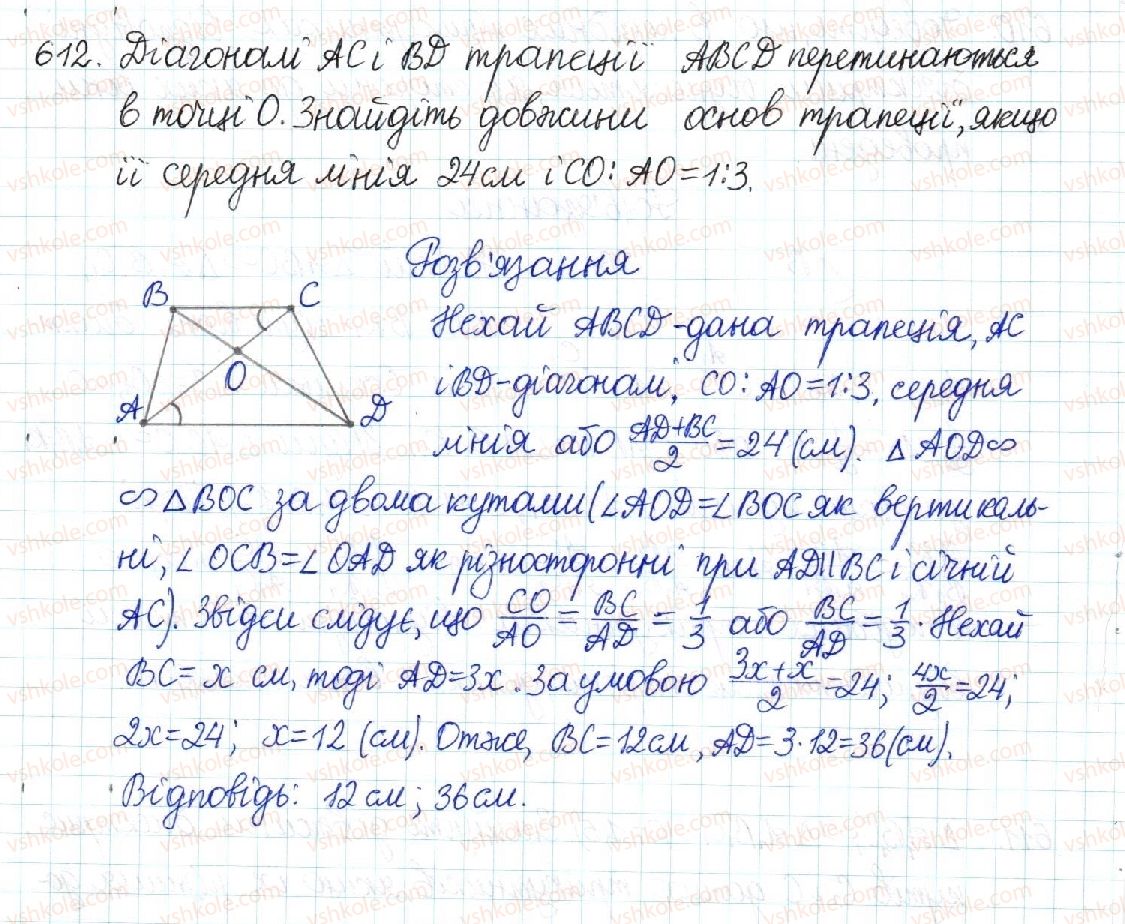 612. Діагоналі AC і BD трапеції ABCD перетинаються
в точці O. Знайдіть довжини основ трапеції, якщо
її середня лінія 24 см і CO : AO = 1 : 3.
Розв'язання
B C
O
A D
Нехай ABCD - дана трапеція, AC
і BD - діагоналі, CO : AO = 1 : 3, середня
лінія або (AD+BC)/2 = 24 (см). △ AOD ∽
∽ △ BOC за двома кутами (∠AOD = ∠BOC як вертикаль-
ні, ∠OCB = ∠OAD як різносторонні при AD || BC і січній
AC). Звідси слідує, що CO/AO = BC/AD = 1/3 або BC/AD = 1/3. Нехай
BC = x см, тоді AD = 3x. За умовою (3x+x)/2 = 24; 4x/2 = 24;
2x = 24; x = 12 (см). Отже, BC = 12 см, AD = 3·12 = 36 (см).
Відповідь: 12 см; 36 см.
vshkole.com